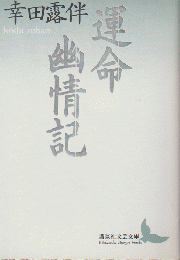 幸田露伴
koda rohan
運命
幽情記
講談社文芸文庫
Kodansha Bungei bunko